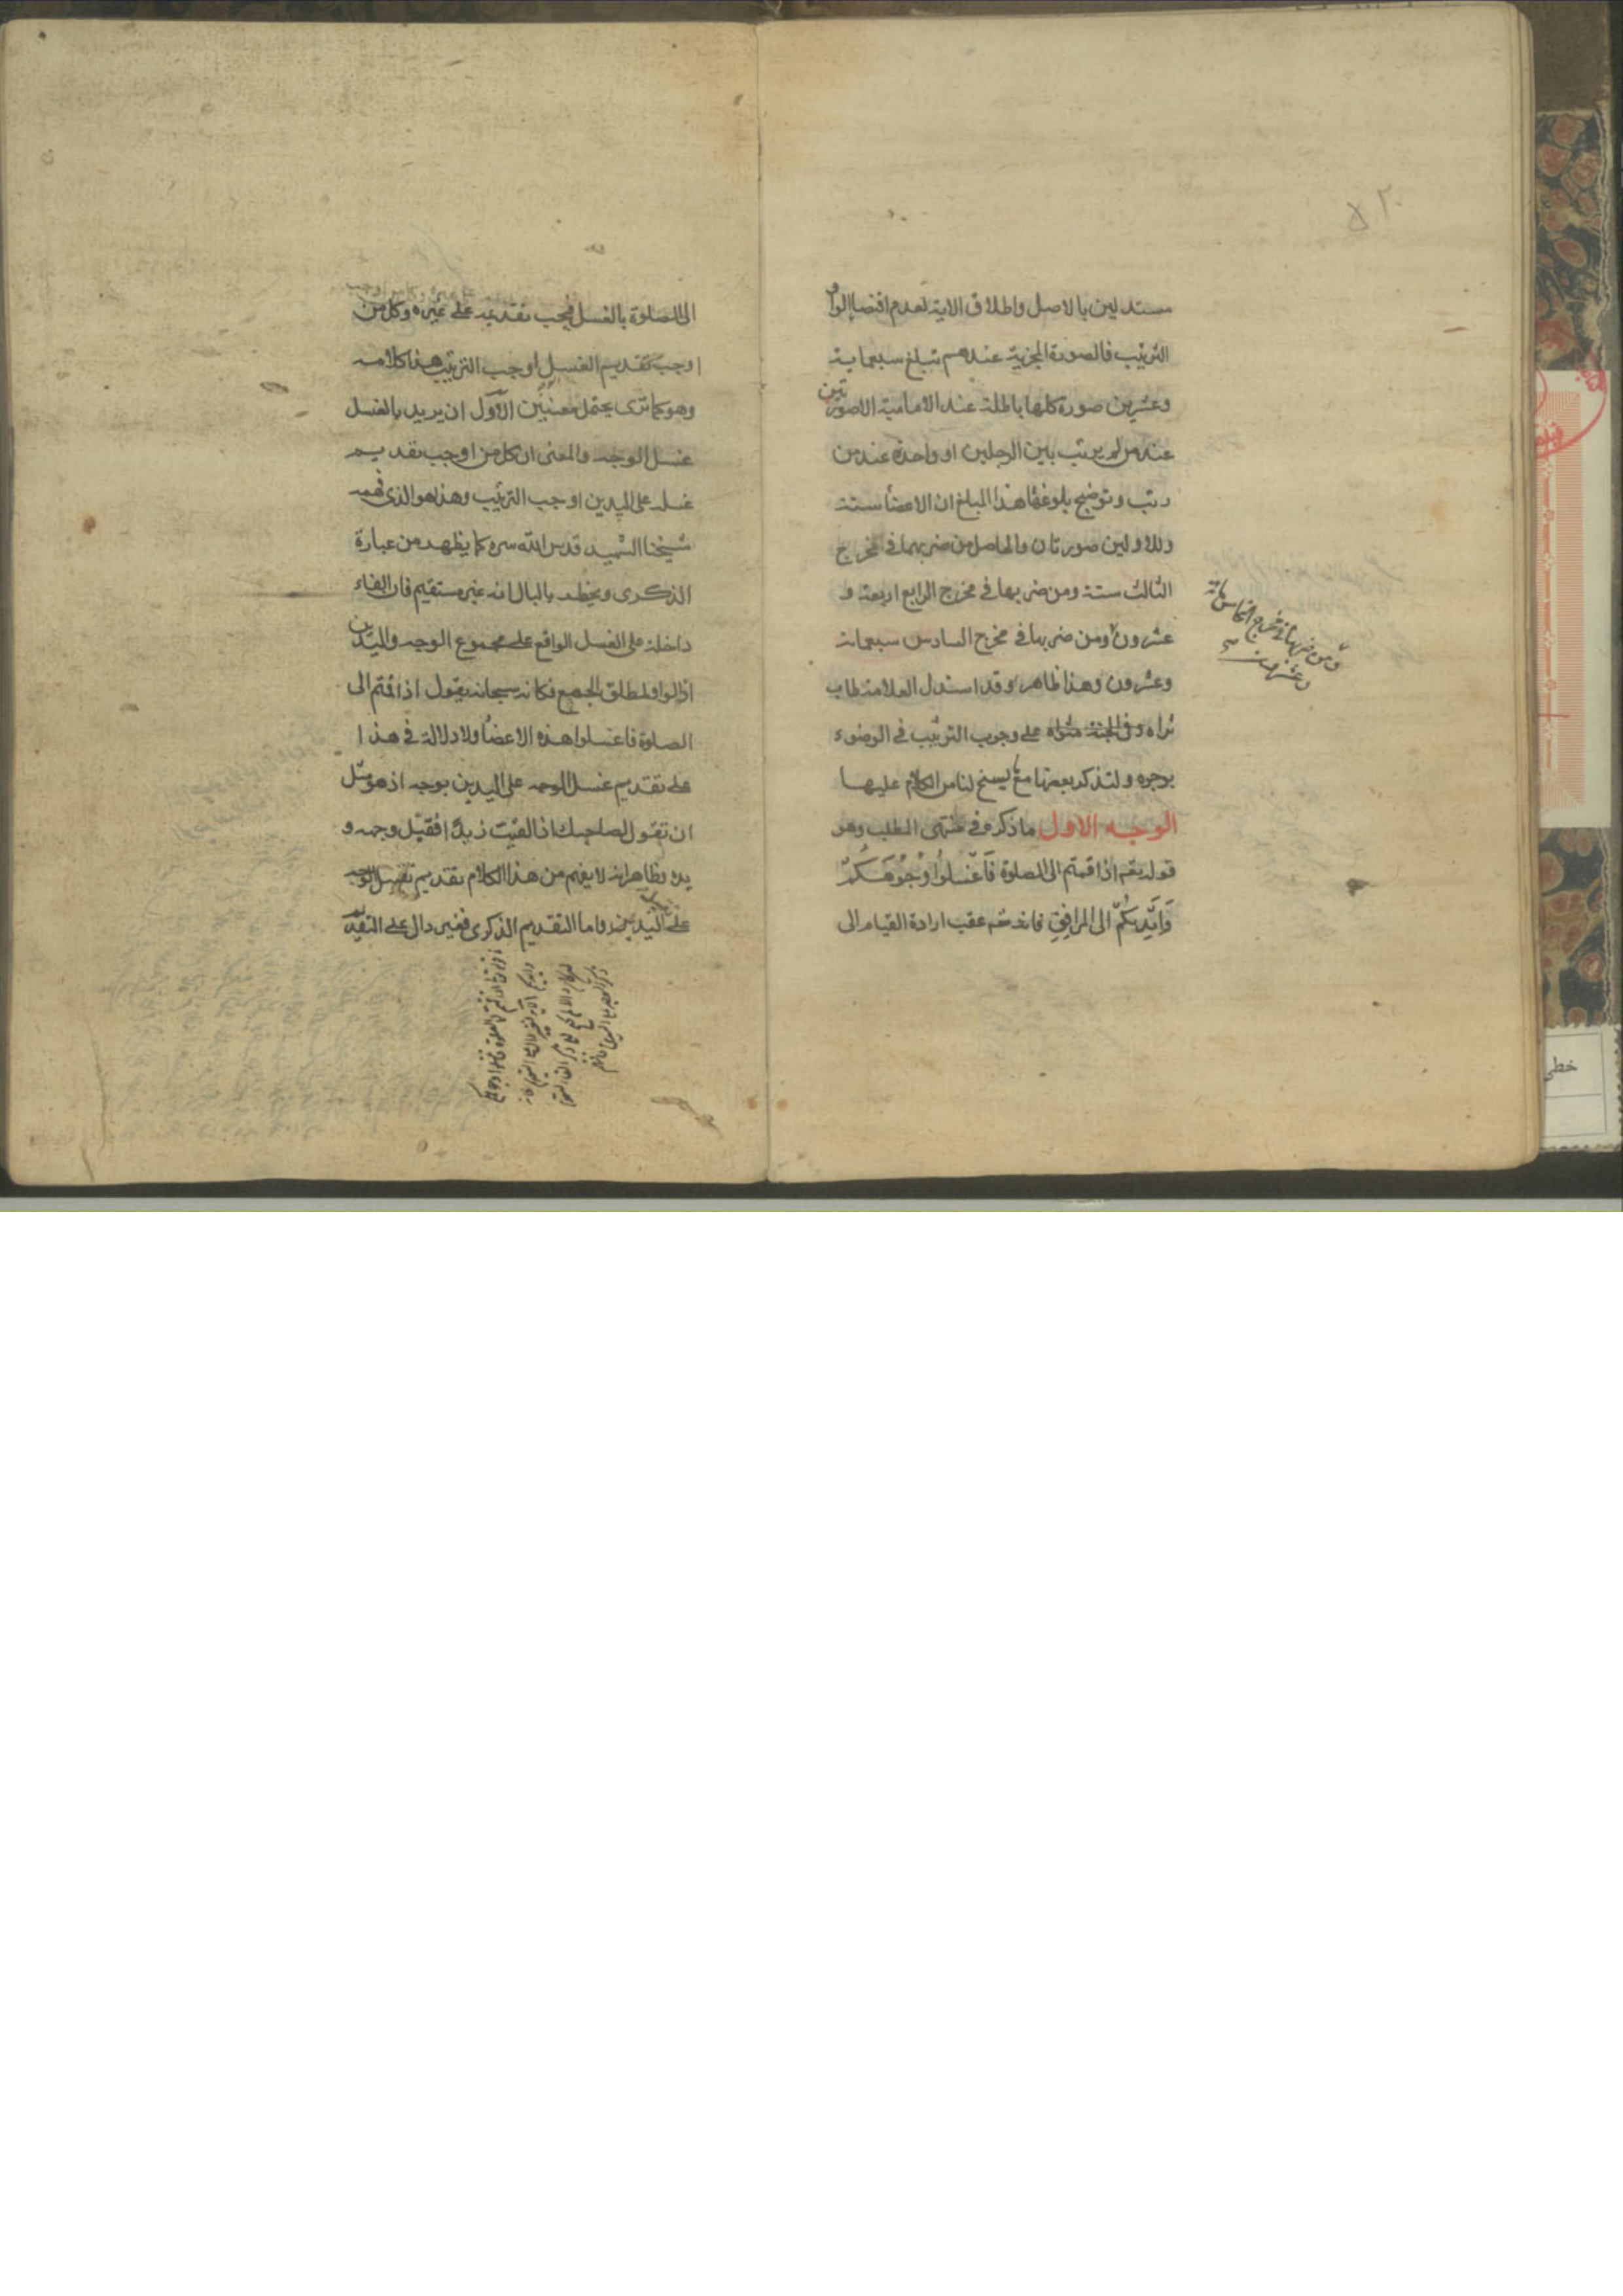 مستدلين بالاصل واطلاق الاية لعدم اقتضا الواو
الترتيب فالصورة المجزية عندهم تبلغ سبعماية
وعشرين صورة كلها باطلة عند الامامية الا صورتين
عند من لم يرتب بين الرجلين او واحدة عند من
رتب وتوضيح بلوغها هذا المبلغ ان الاعضا ستة
وللاولين صورتان والحاصل من ضربهما في مخرج
الثالث ستة ومن ضربها في مخرج الرابع اربعة و
عشرون ومن ضربها في مخرج السادس سبعمائة
وعشرون وهذا ظاهر وقد استدل العلامة طاب
ثراه وفي الجنة مثواه على وجوب الترتيب في الوضوء
بوجوه ولنذكر بعضها مع ما يسنح لنا من الكلام عليها
الوجه الاول ما ذكره في منتهى المطلب وهو
قوله تعم اذا قمتم الى الصلوة فَاغْسِلُوا وُجُوهَكُمْ
وَاَيْدِيَكُمْ الى المرافِقِ فانه تعم عقب ارادة القيام الى
ومن ضربها في مخرج الخامس مائة
وعشرون
٥٢
الى الصلوة بالغسل فيجب تقديمه على غيره وكل من
اوجب تقديم الغسل اوجب الترتيب هذا كلامه
وهو كما ترى يحتمل معنيين الاول ان يريد بالغسل
غسل الوجه والمعنى ان كل من اوجب تقديم
غسله على اليدين اوجب الترتيب وهذا هو الذى فهمه
شيخنا الشهيد قدس الله سره كما يظهر من عبارة
الذكرى ويخطر بالبال انه غير مستقيم فان الفاء
داخلة على الغسل الواقع على مجموع الوجه واليدين
اذ الواو لمطلق الجمع فكانه سبحانه يقول اذا قمتم الى
الصلوة فاغسلوا هذه الاعضا ولا دلالة في هذا
على تقديم غسل الوجه على اليدين بوجه اذ هو مثل
ان تقول لصاحبك اذا لقيت زيدا فقبّل وجهه و
يده وظاهر انه لا يفهم من هذا الكلام تقديم تقبيل الوجه
على اليدين واما التقديم الذكرى فغير دال على